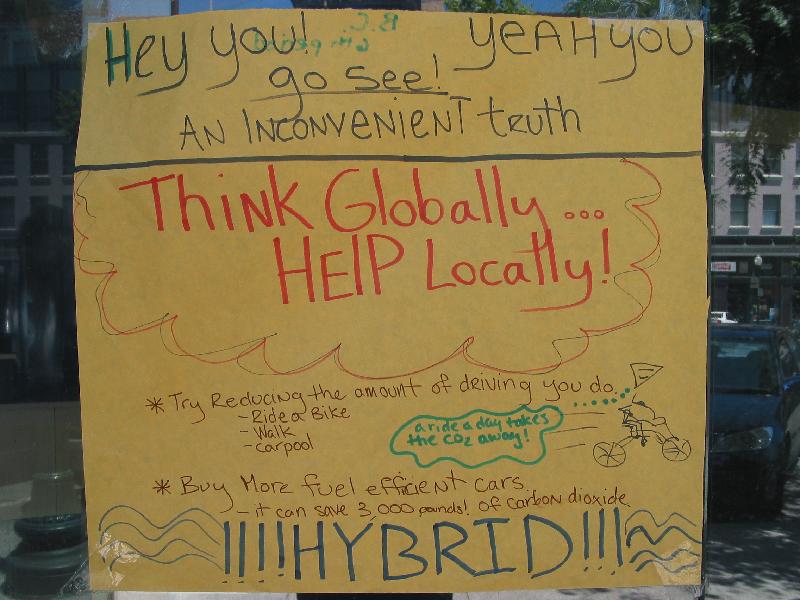 Hey you! YEAH you
go see!
AN INCONVENIENT truth
Think Globally...
HELP Locally!
* Try Reducing the amount of driving you do.
- Ride a Bike
- Walk
- carpool
a ride a day takes
the CO2 away!
* Buy More fuel efficient cars.
- it can save 3,000 pounds! of carbon dioxide
!!!!HYBRID!!!